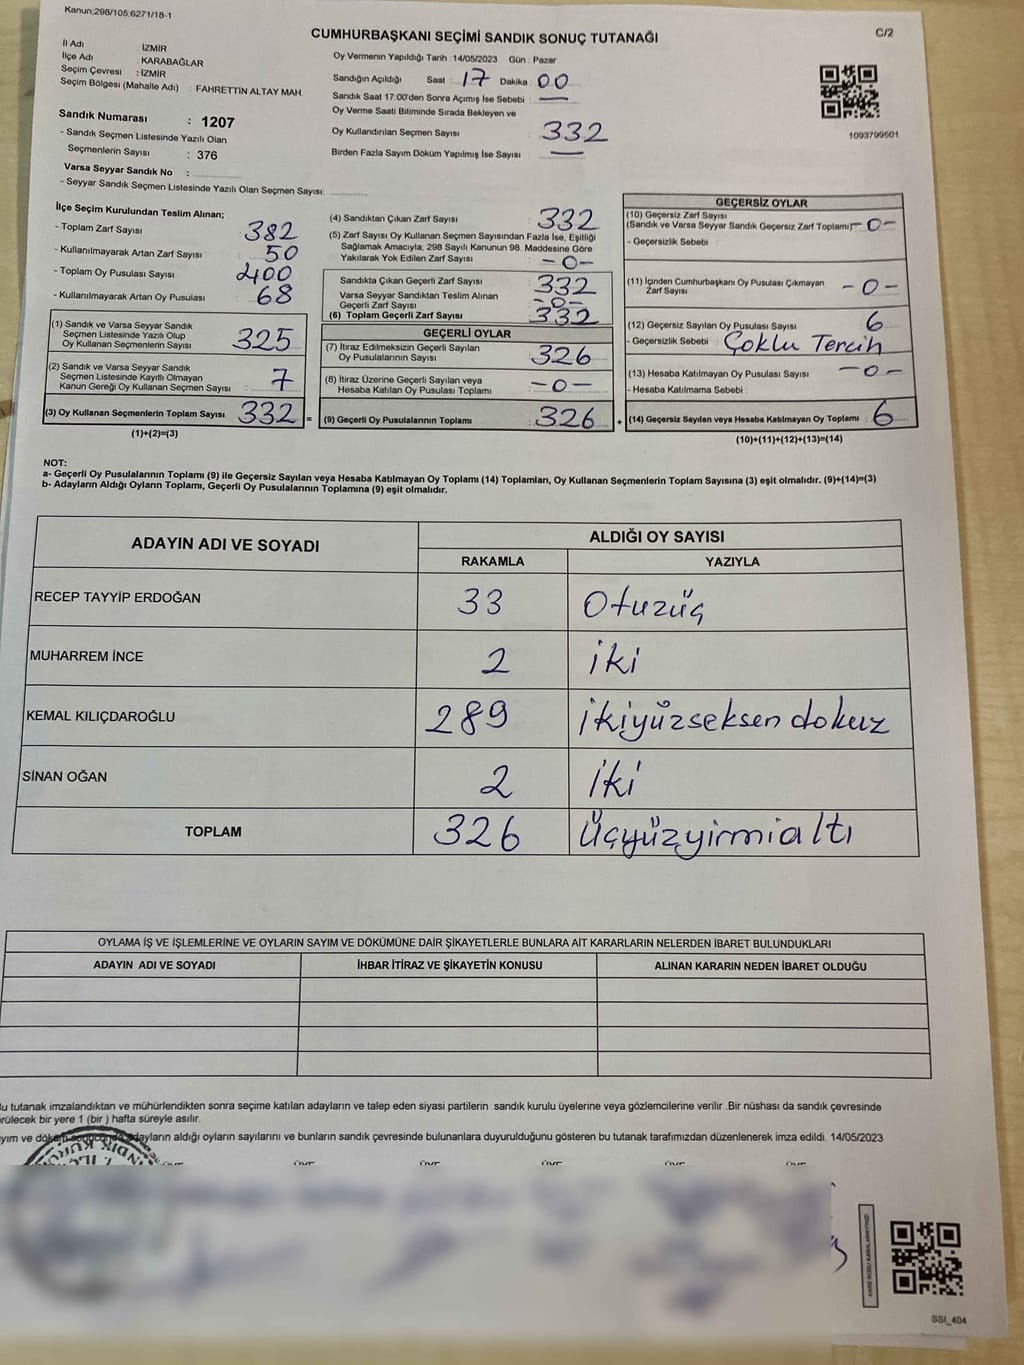 Kanun:298/105.6271/18-1
CUMHURBAŞKANI SEÇİMİ SANDIK SONUÇ TUTANAĞI
C/2
İl Adı : İZMİR
İlçe Adı : KARABAĞLAR
Seçim Çevresi : İZMİR
Seçim Bölgesi (Mahalle Adı) : FAHRETTİN ALTAY MAH.
Sandık Numarası : 1207
- Sandık Seçmen Listesinde Yazılı Olan
Seçmenlerin Sayısı : 376
Varsa Seyyar Sandık No :
- Seyyar Sandık Seçmen Listesinde Yazılı Olan Seçmen Sayısı:
Oy Vermenin Yapıldığı Tarih :14/05/2023 Gün : Pazar
Sandığın Açıldığı Saat : 17 Dakika 00
Sandık Saat 17:00'den Sonra Açmış İse Sebebi : —
Oy Verme Saati Bitiminde Sırada Bekleyen ve
Oy Kullandırılan Seçmen Sayısı : 332
Birden Fazla Sayım Döküm Yapılmış İse Sayısı : —
1093799501
İlçe Seçim Kurulundan Teslim Alınan;
- Toplam Zarf Sayısı : 382
- Kullanılmayarak Artan Zarf Sayısı : 50
- Toplam Oy Pusulası Sayısı : 400
- Kullanılmayarak Artan Oy Pusulası : 68
(1) Sandık ve Varsa Seyyar Sandık
Seçmen Listesinde Yazılı Olup
Oy Kullanan Seçmenlerin Sayısı : 325
(2) Sandık ve Varsa Seyyar Sandık
Seçmen Listesinde Kayıtlı Olmayan
Kanun Gereği Oy Kullanan Seçmen Sayısı : 7
(3) Oy Kullanan Seçmenlerin Toplam Sayısı : 332 =
(1)+(2)=(3)
(4) Sandıktan Çıkan Zarf Sayısı : 332
(5) Zarf Sayısı Oy Kullanan Seçmen Sayısından Fazla İse, Eşitliği
Sağlamak Amacıyla, 298 Sayılı Kanunun 98. Maddesine Göre
Yakılarak Yok Edilen Zarf Sayısı : -0-
Sandıkta Çıkan Geçerli Zarf Sayısı : 332
Varsa Seyyar Sandıktan Teslim Alınan
Geçerli Zarf Sayısı : -0-
(6) Toplam Geçerli Zarf Sayısı : 332
GEÇERLİ OYLAR
(7) İtiraz Edilmeksizin Geçerli Sayılan
Oy Pusulalarının Sayısı : 326
(8) İtiraz Üzerine Geçerli Sayılan veya
Hesaba Katılan Oy Pusulası Toplamı : -0-
(9) Geçerli Oy Pusulalarının Toplamı : 326 +
GEÇERSİZ OYLAR
(10) Geçersiz Zarf Sayısı
(Sandık ve Varsa Seyyar Sandık Geçersiz Zarf Toplamı) -0-
- Geçersizlik Sebebi :
(11) İçinden Cumhurbaşkanı Oy Pusulası Çıkmayan
Zarf Sayısı : -0-
(12) Geçersiz Sayılan Oy Pusulası Sayısı : 6
- Geçersizlik Sebebi : Çoklu Tercih
(13) Hesaba Katılmayan Oy Pusulası Sayısı : -0-
- Hesaba Katılmama Sebebi :
(14) Geçersiz Sayılan veya Hesaba Katılmayan Oy Toplamı : 6
(10)+(11)+(12)+(13)=(14)
NOT:
a- Geçerli Oy Pusulalarının Toplamı (9) ile Geçersiz Sayılan veya Hesaba Katılmayan Oy Toplamı (14) Toplamları, Oy Kullanan Seçmenlerin Toplam Sayısına (3) eşit olmalıdır. (9)+(14)=(3)
b- Adayların Aldığı Oyların Toplamı, Geçerli Oy Pusulalarının Toplamına (9) eşit olmalıdır.
ADAYIN ADI VE SOYADI
ALDIĞI OY SAYISI
RAKAMLA YAZIYLA
RECEP TAYYİP ERDOĞAN 33 Otuzüç
MUHARREM İNCE 2 iki
KEMAL KILIÇDAROĞLU 289 ikiyüzseksen dokuz
SİNAN OĞAN 2 iki
TOPLAM 326 Üçyüzyirmialtı
OYLAMA İŞ VE İŞLEMLERİNE VE OYLARIN SAYIM VE DÖKÜMÜNE DAİR ŞİKAYETLERLE BUNLARA AİT KARARLARIN NELERDEN İBARET BULUNDUKLARI
ADAYIN ADI VE SOYADI İHBAR İTİRAZ VE ŞİKAYETİN KONUSU ALINAN KARARIN NEDEN İBARET OLDUĞU
Bu tutanak imzalandıktan ve mühürlendikten sonra seçime katılan adayların ve talep eden siyasi partilerin sandık kurulu üyelerine veya gözlemcilerine verilir .Bir nüshası da sandık çevresinde
bir yere 1 (bir ) hafta süreyle asılır.
ve döküm sonucunda adayların aldığı oyların sayılarını ve bunların sandık çevresinde bulunanlara duyurulduğunu gösteren bu tutanak tarafımızdan düzenlenerek imza edildi. 14/05/2023
SSİ_404